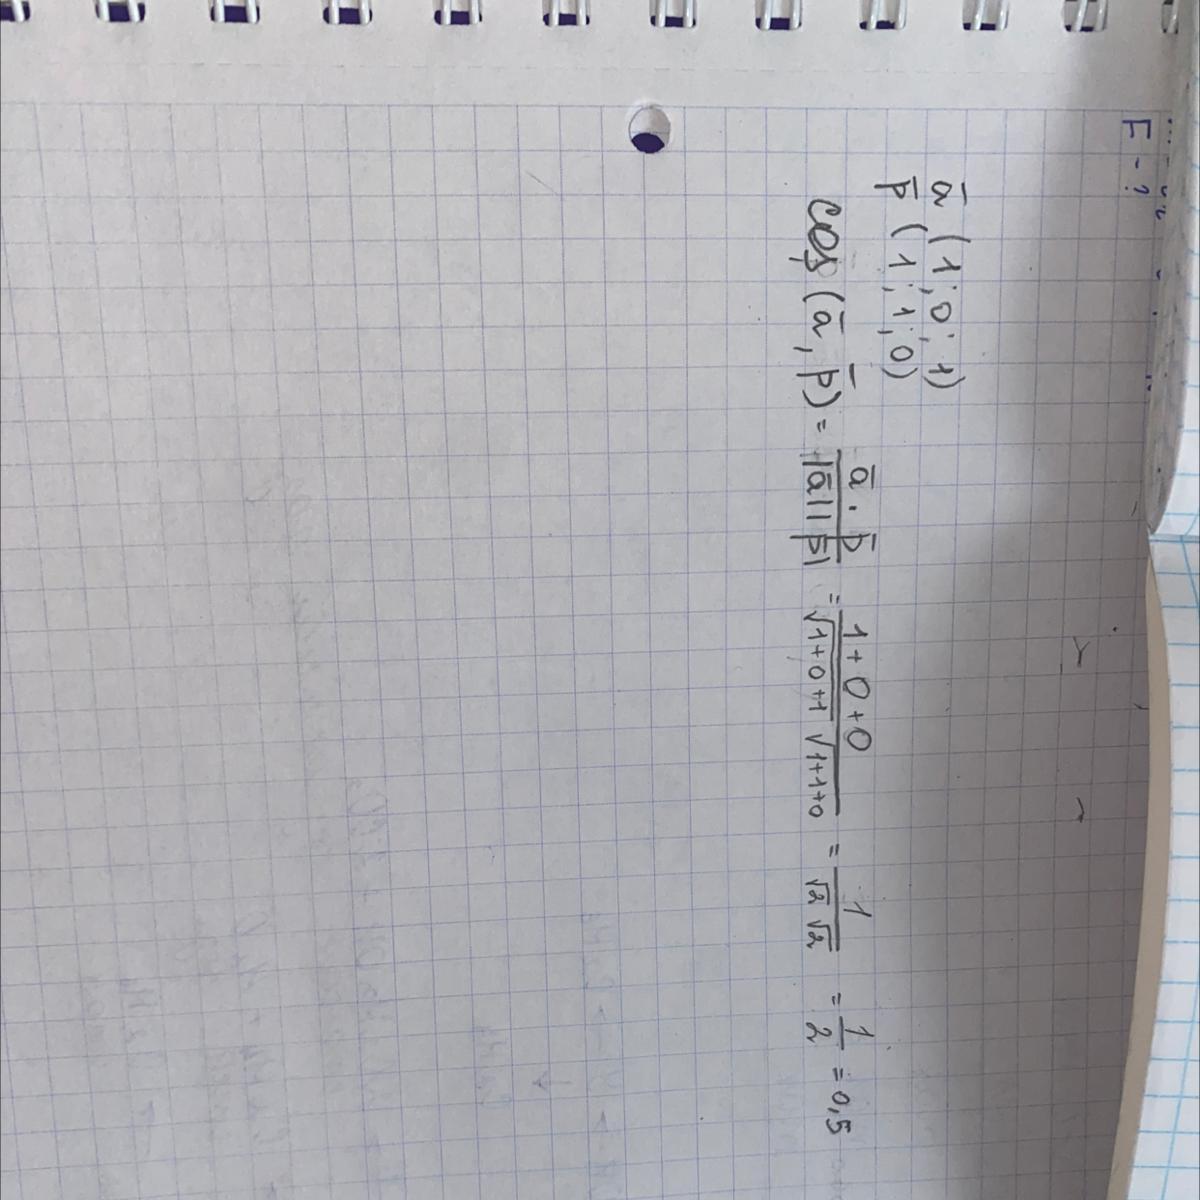 F - ?
ā (1; 0; 1)
p̄ (1; 1; 0)
cos (ā, p̄) = ā · p̄ / |ā| |p̄| = 1+0+0 / √1+0+1 √1+1+0 = 1 / √2 √2 = 1/2 = 0,5